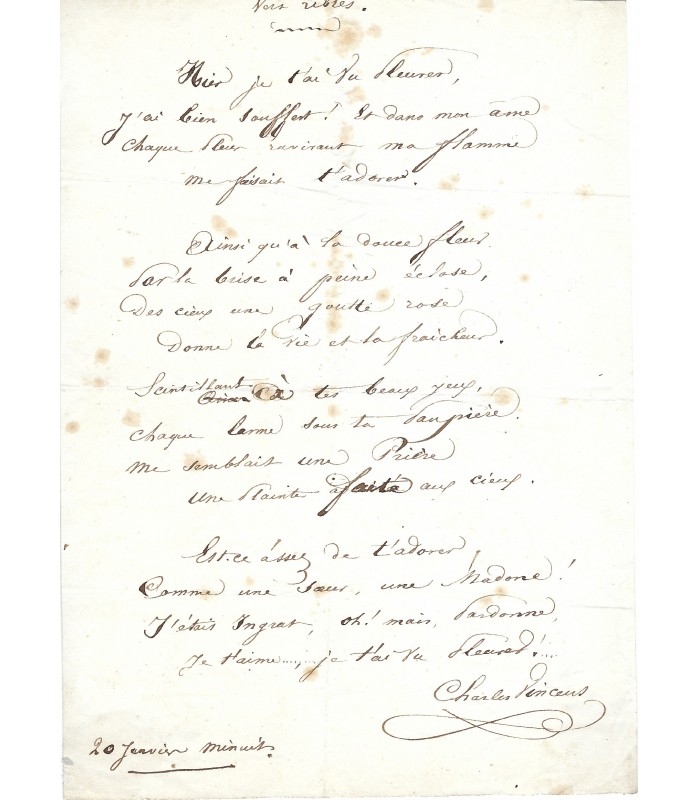 Vers
Hier je t'ai Vu Pleurer,
J'ai bien souffert! Et dans mon âme
Chaque Pleur ravivant ma flamme
me faisait t'adorer.
Ainsi qu'à la douce fleur
Par la brise à peine éclose,
Des cieux une goutte rose
Donne la Vie et la fraicheur.
Scintillant à tes beaux yeux,
Chaque larme sous ta Paupière
me semblait une Prière
une Plainte faite aux cieux.
Est-ce assez de t'adorer
Comme une sœur, une Madone!
J'étais Ingrat, oh! mais, Pardonne,
Je t'aime...., je t'ai Vu Pleurer!...
Charles Vincent
20 Janvier minuit